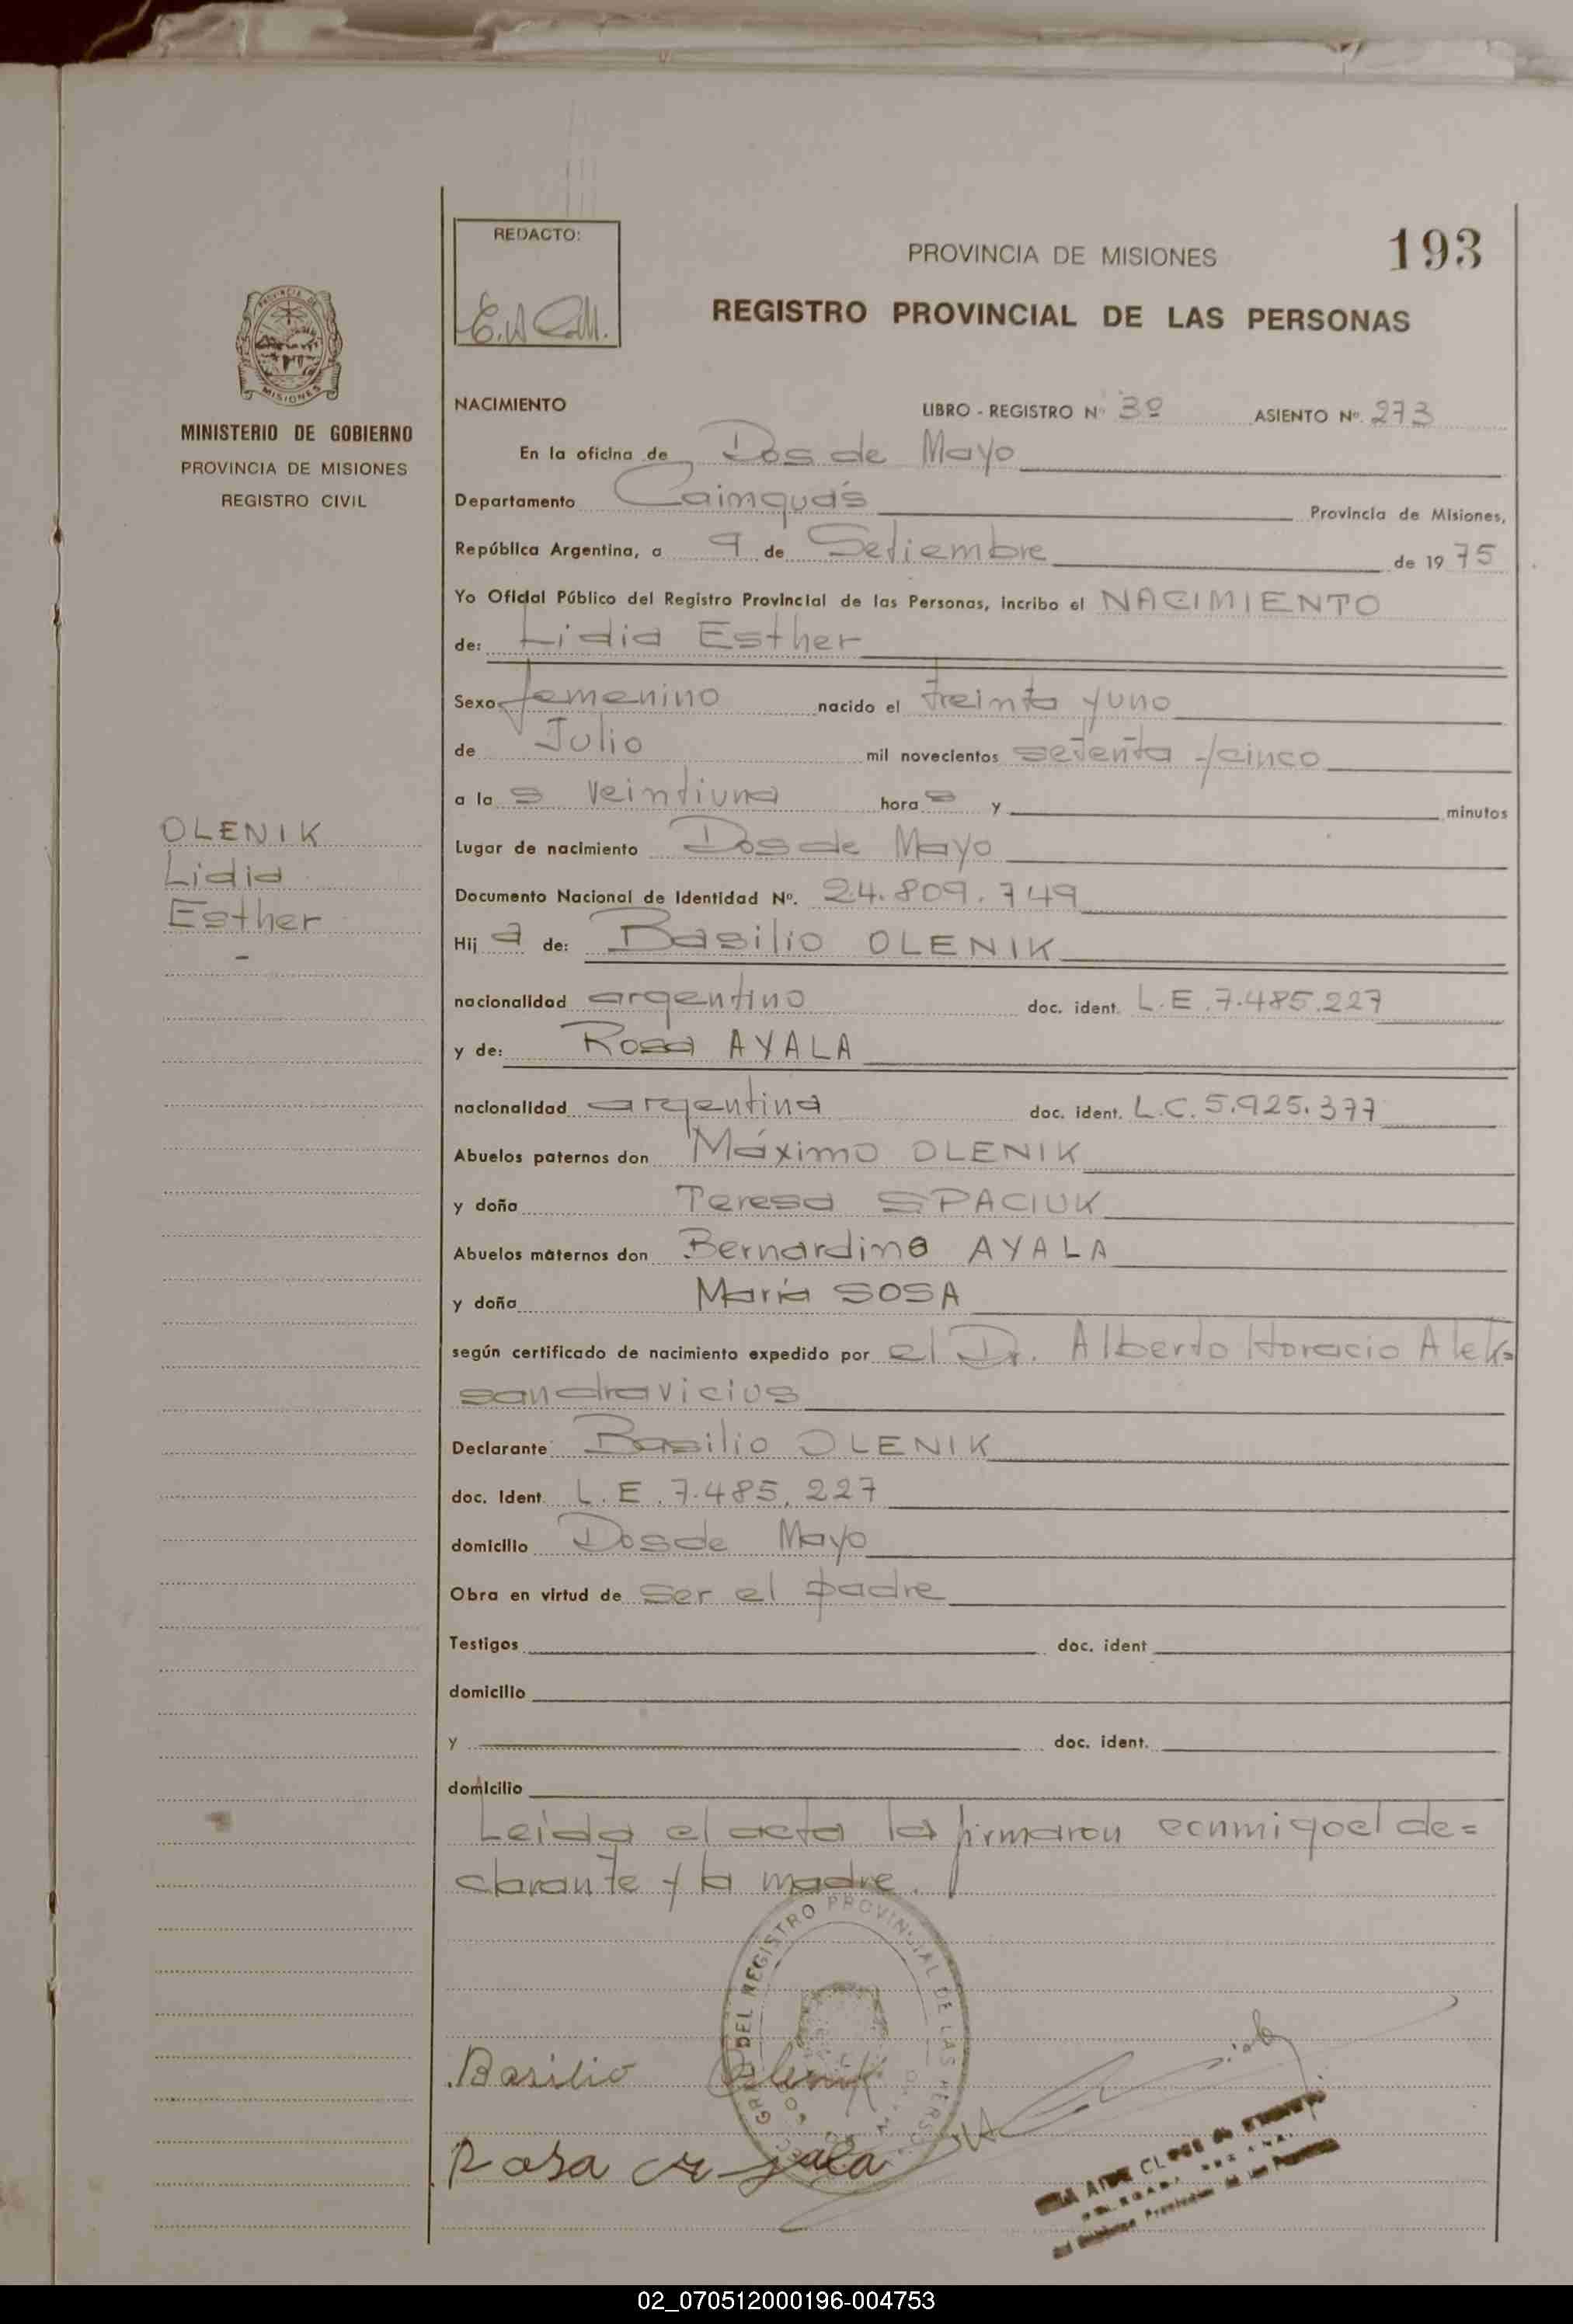 REDACTO:
PROVINCIA DE MISIONES
193
REGISTRO PROVINCIAL DE LAS PERSONAS
PROVINCIA DE
MISIONES
MINISTERIO DE GOBIERNO
PROVINCIA DE MISIONES
REGISTRO CIVIL
NACIMIENTO LIBRO - REGISTRO Nº 3º ASIENTO Nº. 273
En la oficina de Dos de Mayo
Departamento Cainguás Provincia de Misiones,
República Argentina, a 9 de Setiembre de 1975
Yo Oficial Público del Registro Provincial de las Personas, incribo el NACIMIENTO
de: Lidia Esther
Sexo femenino nacido el treinta y uno
de Julio mil novecientos setenta y cinco
a la s veintiuna hora s y minutos
OLENIK
Lidia
Esther
Lugar de nacimiento Dos de Mayo
Documento Nacional de Identidad Nº. 24.809.749
Hij a de: Basilio OLENIK
nacionalidad argentino doc. ident. L.E. 7.485.227
y de: Rosa AYALA
nacionalidad argentina doc. ident. L.C. 5.925.377
Abuelos paternos don Máximo OLENIK
y doña Teresa SPACIUK
Abuelos maternos don Bernardino AYALA
y doña María SOSA
según certificado de nacimiento expedido por el Dr. Alberto Horacio Alek=
sandravicius
Declarante Basilio OLENIK
doc. Ident. L.E. 7.485.227
domicilio Dos de Mayo
Obra en virtud de ser el padre
Testigos doc. ident
domicilio
y doc. ident.
domicilio
Leida el acta la firmaron conmigo el de=
clarante y la madre.
GRAL DEL REGISTRO PROVINCIAL DE LAS PERSO
Basilio Olenik
Rosa ayala
02_070512000196-004753